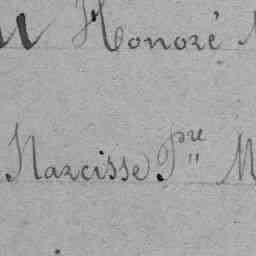 Honoré
Narcisse Pre M